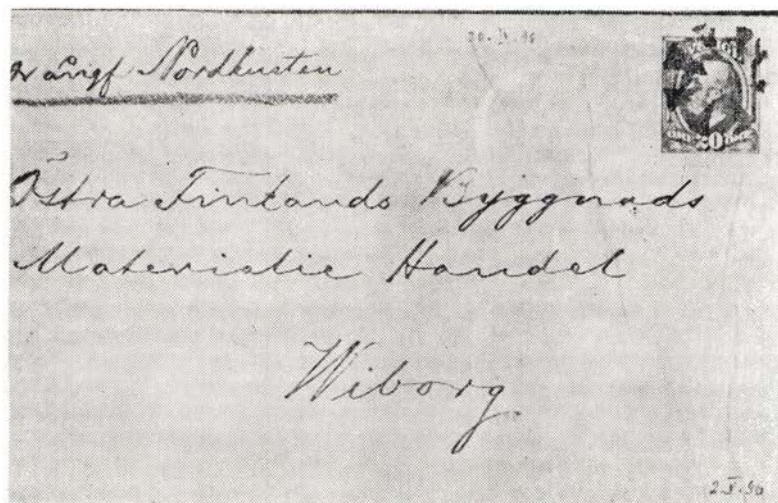 20.IV.96
pr ångf Nordkusten
20
Östra Finlands Byggnads
Materialie Handel
Wiborg
2.V.96